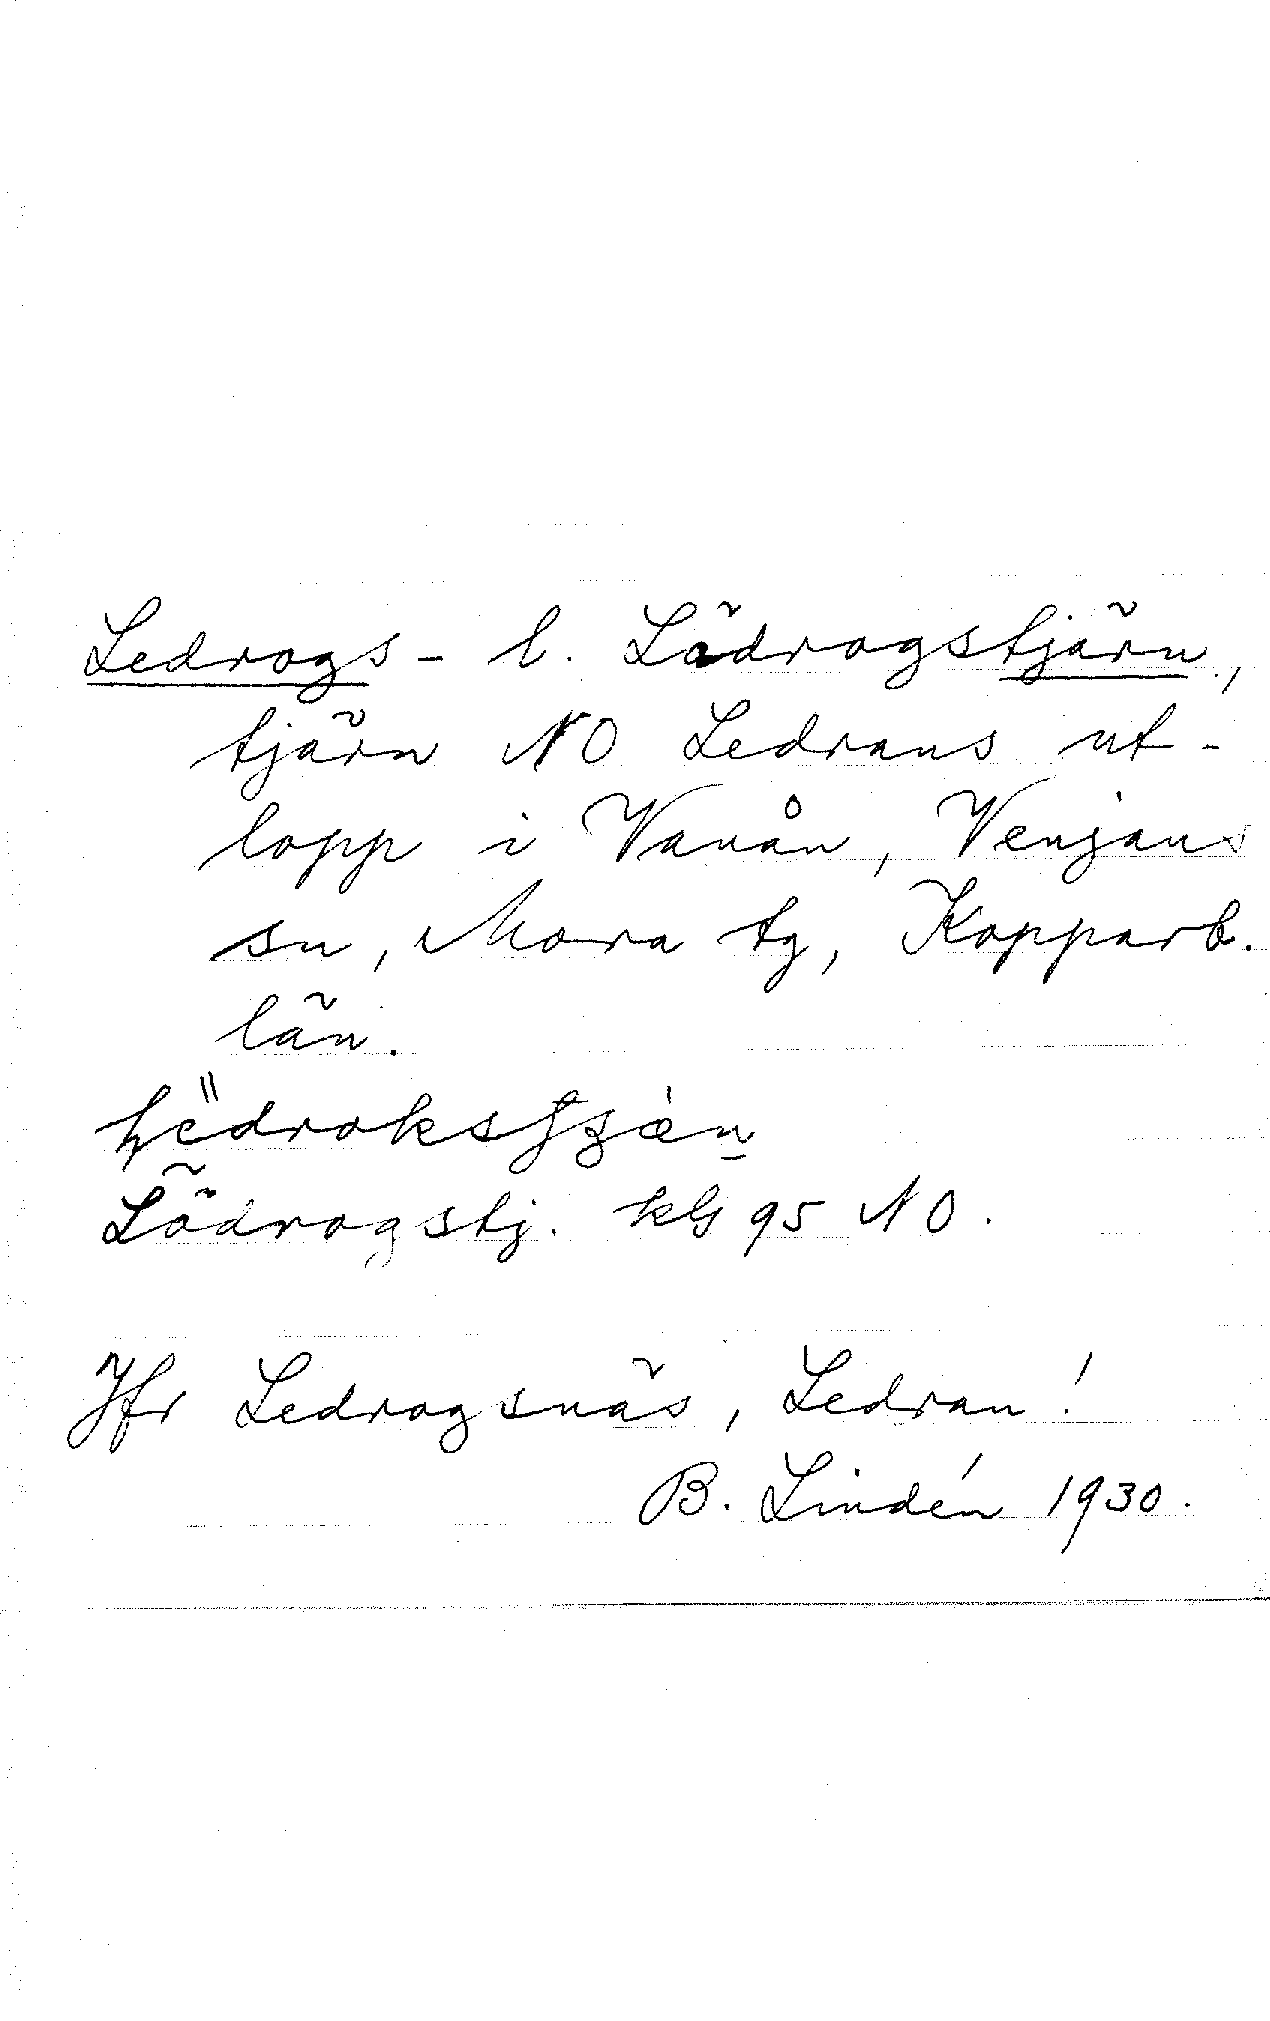 Ledrogs- l. Lädrogstjärn,
tjärn NO Ledrans ut-
lopp i Vanån, Venjans
sn, Mora tg, Kopparb.
län.
Lödrogstj. kG 95 NO.
Jfr Ledrogsnäs, Ledran!
B. Lindén 1930.